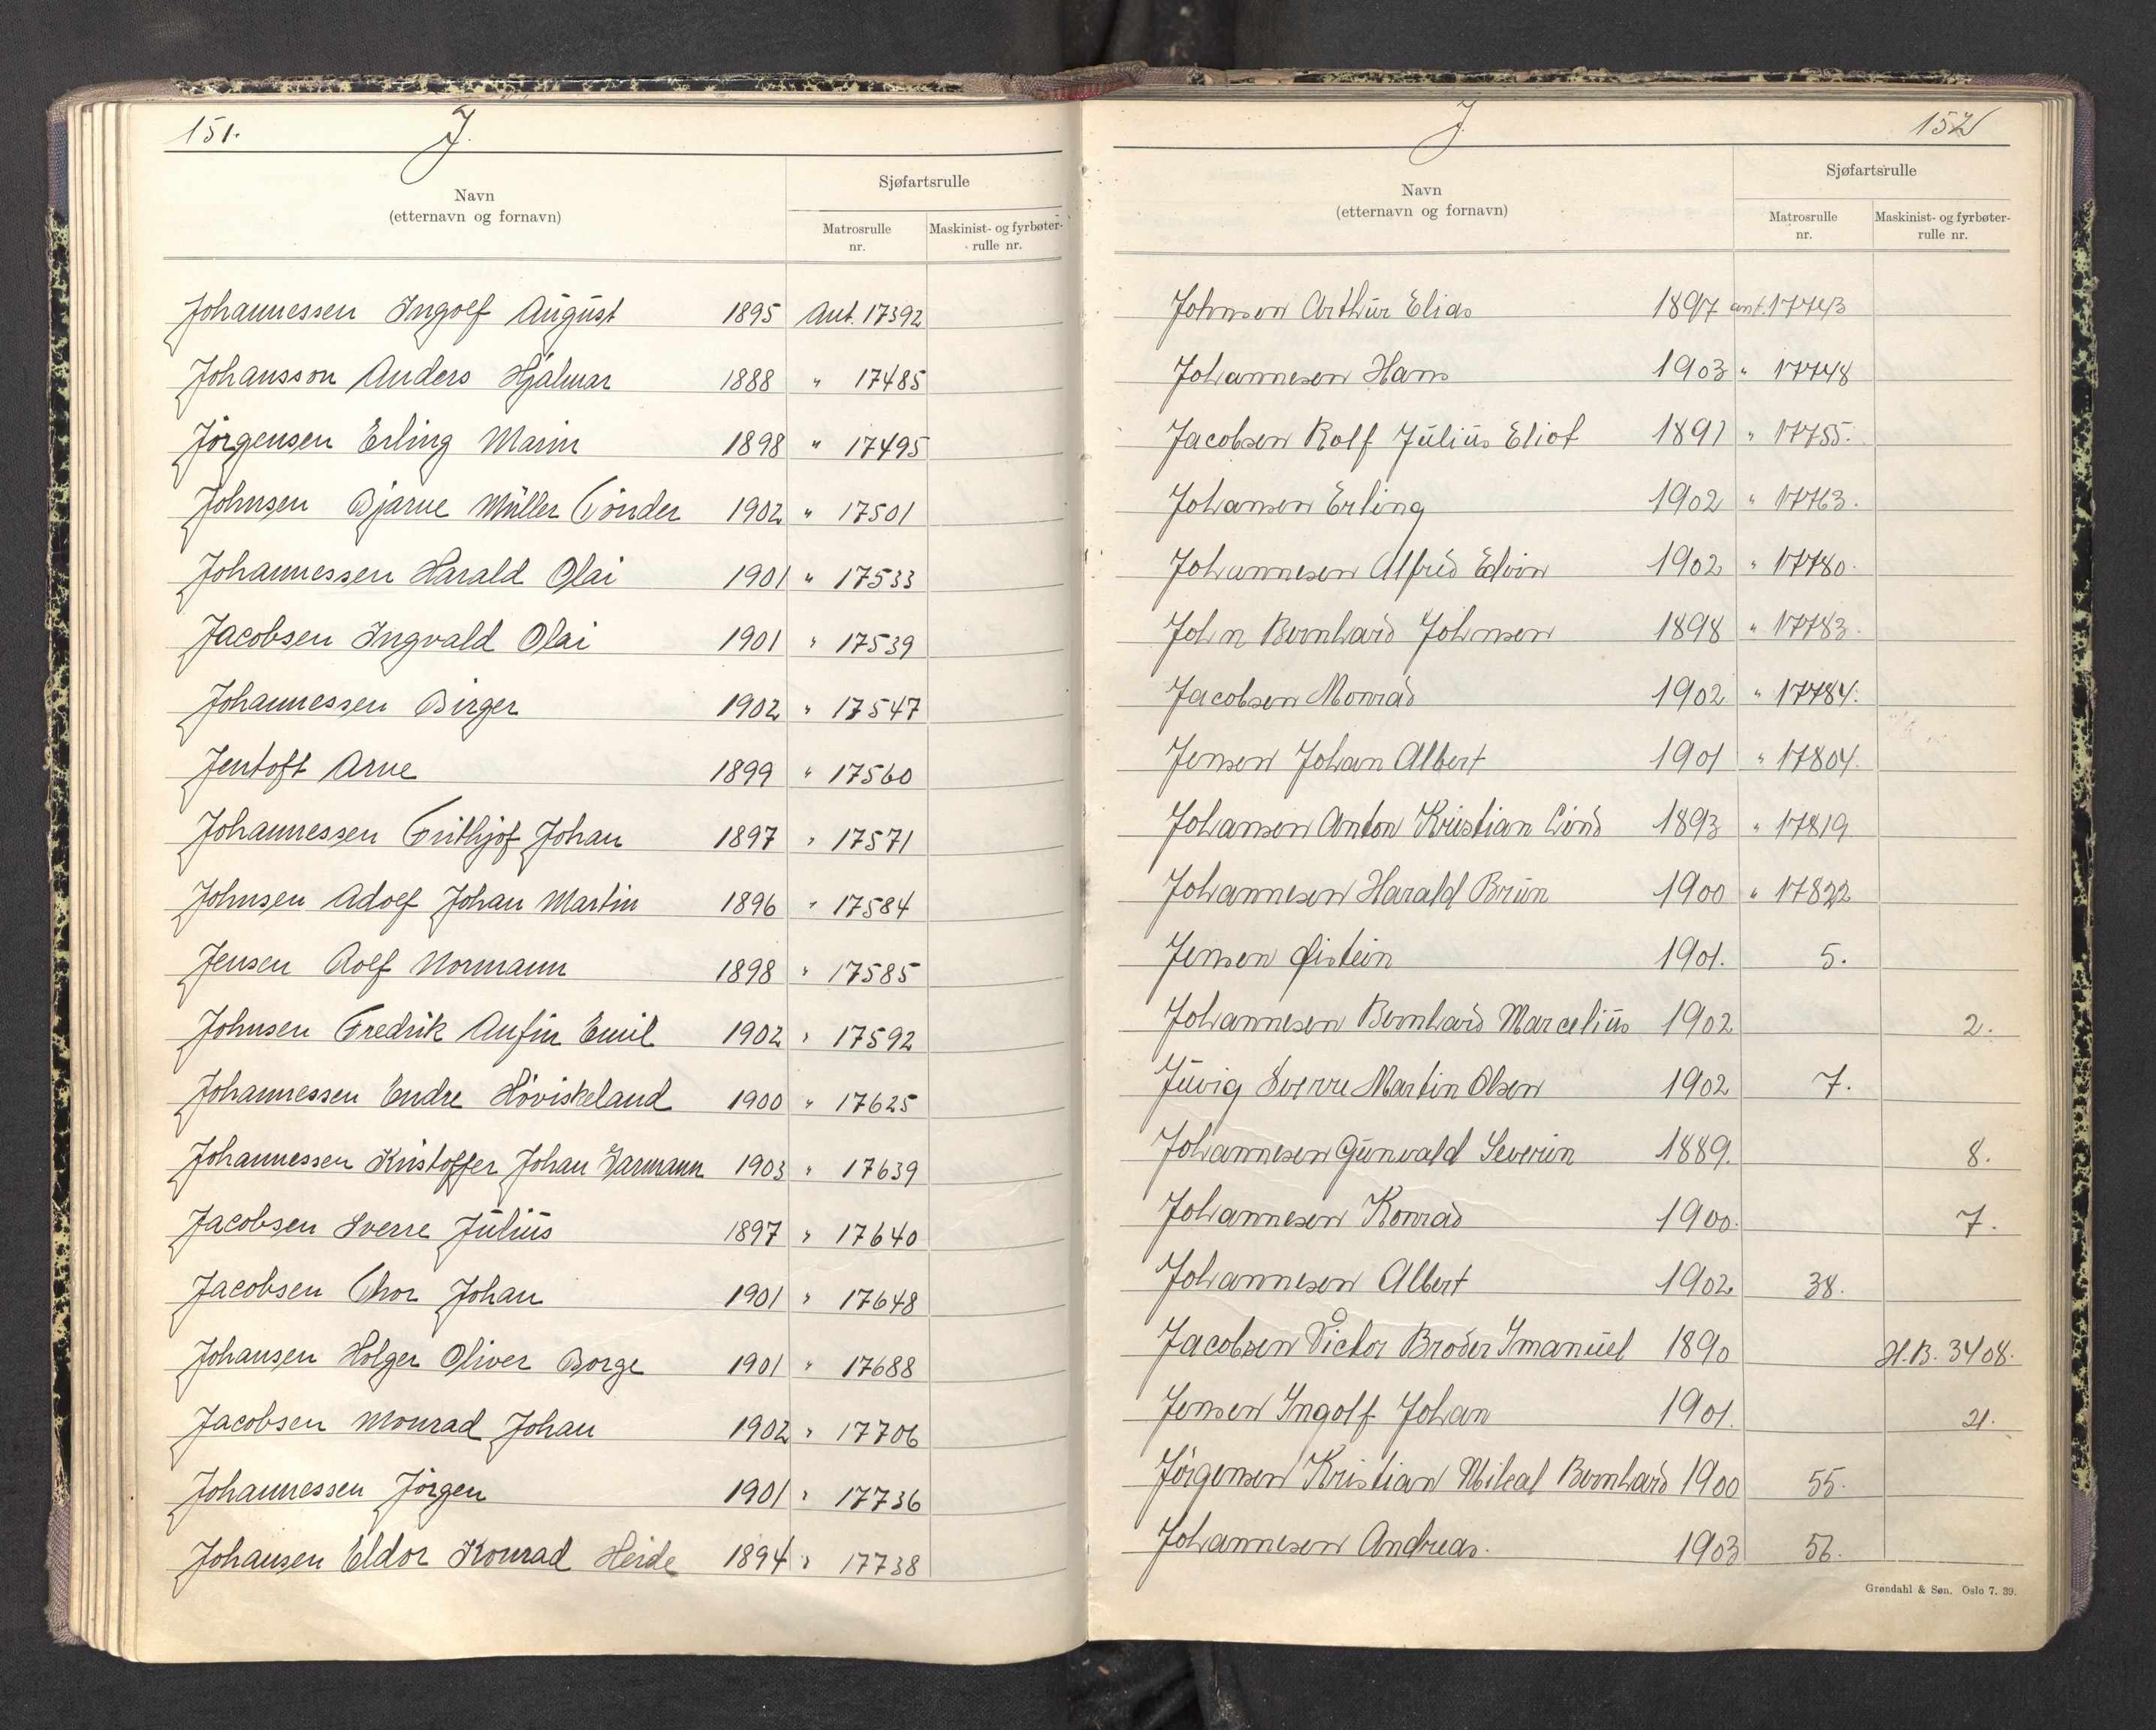 151.
J.
Navn
(etternavn og fornavn)
Sjøfartsrulle
Matrosrulle
nr.
Maskinist- og fyrbøter-
rulle nr.
Johannessen Ingolf August 1895 Ant. 17392
Johansson Anders Hjalmar 1888 " 17485
Jörgensen Erling Marin 1898 " 17495
Johnsen Bjarne Müller Tönder 1902 " 17501
Johannessen Harald Olai 1901 " 17533
Jacobsen Ingvald Olai 1901 " 17539
Johannessen Birger 1902 " 17547
Jentoft Arne 1899 " 17560
Johannessen Frithjof Johan 1897 " 17571
Johnsen Adolf Johan Martin 1896 " 17584
Jensen Rolf Normann 1898 " 17585
Johnsen Fredrik Anfin Emil 1902 " 17592
Johannessen Endre Höviskeland 1900 " 17625
Johannessen Kristoffer Johan Garmann 1903 " 17639
Jacobsen Sverre Julius 1897 " 17640
Jacobsen Thor Johan 1901 " 17648
Johansen Holger Oliver Borge 1901 " 17688
Jacobsen Monrad Johan 1902 " 17706
Johannessen Jörgen 1901 " 17736
Johansen Eldor Konrad Heide 1894 " 17738
J.
152
Navn
(etternavn og fornavn)
Sjøfartsrulle
Matrosrulle
nr.
Maskinist- og fyrbøter-
rulle nr.
Johnsen Arthur Elias 1897 ant. 17743
Johannesen Hans 1903 " 17748
Jacobsen Rolf Julius Eliot 1891 " 17755.
Johansen Erling 1902 " 17763.
Johannesen Alfred Edvin 1902 " 17780.
John Bernhard Johnsen 1898 " 17783.
Jacobsen Monrad 1902 " 17784.
Jensen Johan Albert 1901 " 17804.
Johansen Anton Kristian Lind 1893 " 17819
Johannesen Harald Brun 1900 " 17822
Jensen Øistein 1901. 5.
Johannesen Bernhard Marcelius 1902 2.
Juvig Sverre Martin Olsen 1902 7.
Johannesen Gunvald Severin 1889. 8.
Johannesen Konrad 1900. 7.
Johannesen Albert 1902 38.
Jacobsen Victor Broder Imanuel 1890 H.B. 3408.
Jensen Ingolf Johan 1901. 21.
Jörgensen Kristian Mikal Bernhard 1900 55.
Johannesen Andreas. 1903 56.
Grøndahl & Søn. Oslo 7. 39.